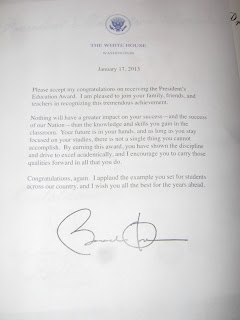 THE WHITE HOUSE
WASHINGTON
January 17, 2013
Please accept my congratulations on receiving the President's
Education Award. I am pleased to join your family, friends, and
teachers in recognizing this tremendous achievement.
Nothing will have a greater impact on your success—and the success
of our Nation—than the knowledge and skills you gain in the
classroom. Your future is in your hands, and as long as you stay
focused on your studies, there is not a single thing you cannot
accomplish. By earning this award, you have shown the discipline
and drive to excel academically, and I encourage you to carry those
qualities forward in all that you do.
Congratulations, again. I applaud the example you set for students
across our country, and I wish you all the best for the years ahead.